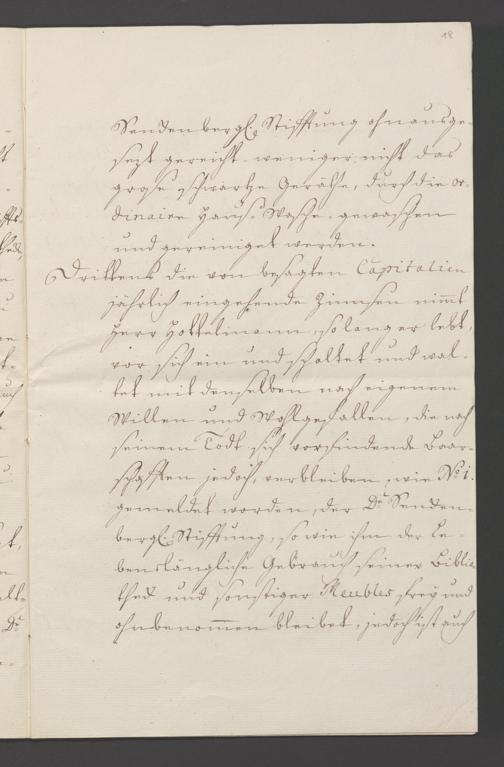 18
Senckenbergl. Stifftung ohnausge-
sezt gereicht. weniger nicht das
grose schwartze Geräthe, durch die or-
dinairen Haus-Wasche gewaschen
und gereiniget werden.
Drittens die von besagten Capitalien
jährlich eingehende Zinnsen nimt
Herr Hottelmann, so lang er lebt,
vor sich ein und schaltet und wal-
tet mit denselben nach eigenem
Willen und Wohlgefallen, die nach
seinem Todt sich vorfindende Baar-
schafften jedoch, verbleiben, wie No. 1.
gemeldet worden, der Dr. Sencken-
bergl. Stifftung, so wie ihm der Le-
benslängliche Gebrauch seiner Biblio
theck und sonstiger Meubles frey und
ohnbenommen bleibet, jedoch ist auch